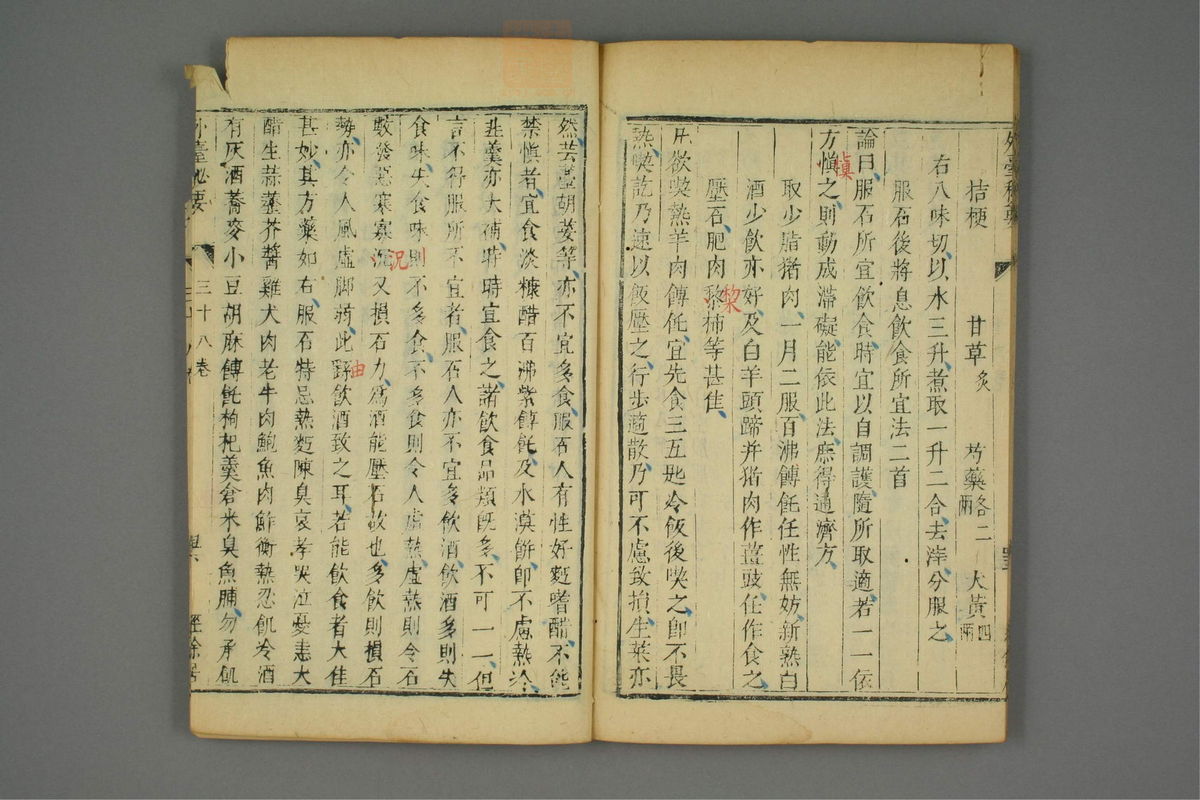 桔梗 甘草炙 芍藥各二兩 大黃四兩
右八味切以水三升煮取一升二合去滓分服之
服石後將息飲食所宜法二首
論曰服石所宜飲食時宜以自調護隨所取適若一一依
方慎之則動成滯礙能依此法庶得通濟方
慎
取少脂猪肉一月二服百沸餺飥任性無妨新熟白
酒少飲亦好及白羊頭蹄并猪肉作薑豉任作食之
壓石肥肉黎柿等甚佳
黎
凡欲喫熱羊肉餺飥宜先食三五匙冷飯後喫之即不畏
熱喫訖乃速以飯壓之行步適散乃可不慮致損生菜亦
然芸薹胡荽等亦不宜多食服石人有性好麪嗜醋不能
禁慎者宜食淡糠醋百沸紫餺飥及水漠餅即不慮熱冷
韭羹亦大補時時宜食之諸飲食品類旣多不可一一但
言不得服所不宜者服石人亦不宜多飲酒飲酒多則失
食味失食味則不多食不多食則令人虛熱虛熱則令石
散發惡寒寒況又損石力爲酒能壓石故也多飲則損石
況
勢亦令人風虛脚弱此野飲酒致之耳若能飲食者大佳
由
甚妙其方藥如右服石特忌熱麪陳臭哀孝哭泣憂恚大
醋生蒜虀芥醬雞犬肉老牛肉鮑魚肉鮓衝熱忍飢冷酒
有灰酒蕎麥小豆胡麻餺飥枸杞羹倉米臭魚脯勿承飢
外臺秘要 三十八卷